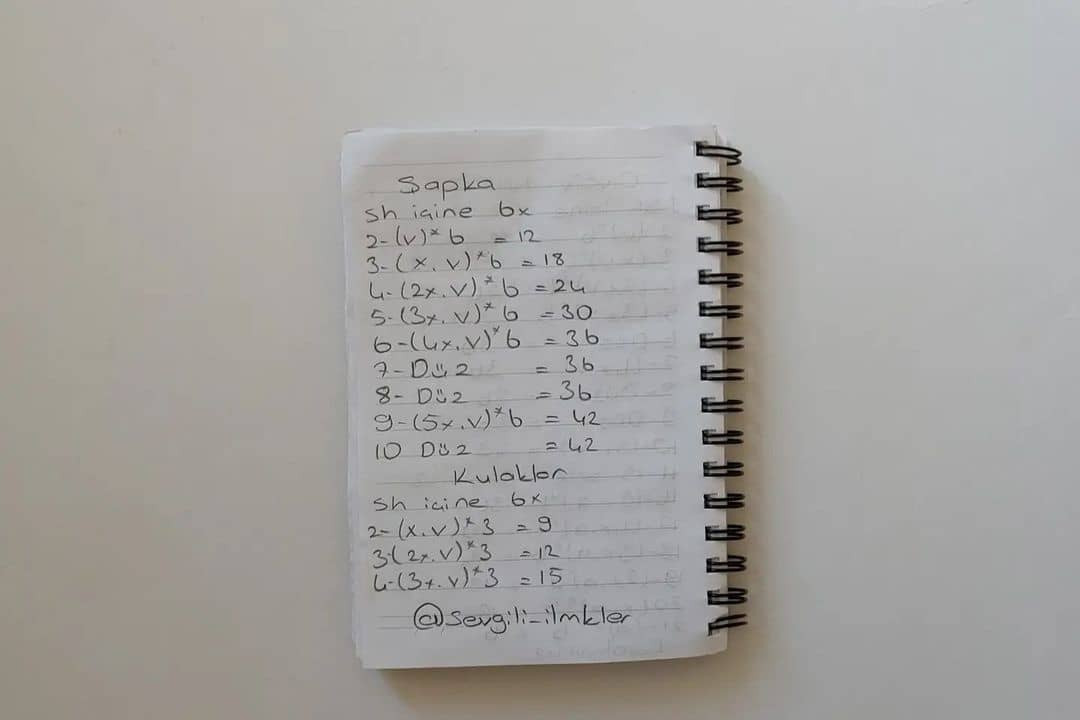 Sapka
sh içine 6x
2-(v)*6 = 12
3-(x.v)*6 = 18
4-(2x.v)*6 = 24
5-(3x.v)*6 = 30
6-(4x.v)*6 = 36
7- Düz = 36
8- Düz = 36
9-(5x.v)*6 = 42
10 Düz = 42
Kulaklar
sh içine 6x
2-(x.v)*3 = 9
3-(2x.v)*3 = 12
4-(3x.v)*3 = 15
@sevgili_ilmkler